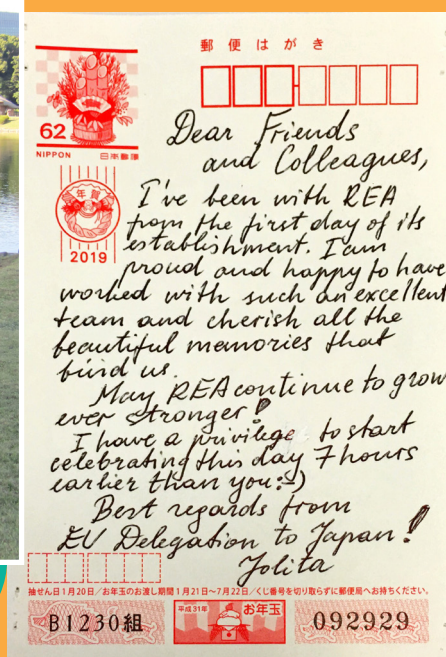 郵便はがき
62
NIPPON 日本郵便
年賀
2019
Dear Friends
and Colleagues,
I've been with REA
from the first day of its
establishment. I am
proud and happy to have
worked with such an excellent
team and cherish all the
beautiful memories that
bind us.
May REA continue to grow
ever stronger!
I have a privilege to start
celebrating this day 7 hours
earlier than you :-)
Best regards from
EU Delegation to Japan!
Jolita
抽せん日1月20日/お年玉のお渡し期間1月21日~7月22日/くじ番号を切り取らずに郵便局へお持ちください。
B1230組
平成31年
お年玉
092929